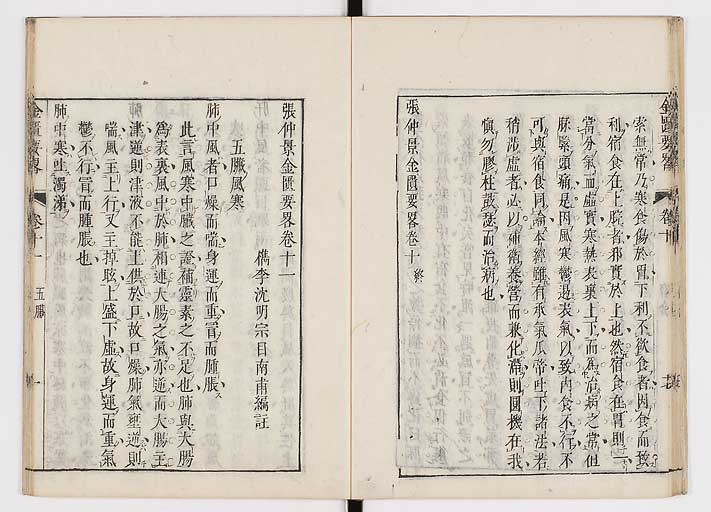 索無常乃寒食傷於胃下利不飲食者因食而致
利宿食在上脘者邪實於上也然宿食在胃則一
當分氣血虛實寒熱表裏上下而爲治病之常但
脈緊頭痛是因風寒鬱遏表氣以致內食不行不
可與宿食同論本經雖有承氣瓜帝吐下諸法若
稍涉虛者必以補衛養營而兼化滯則圓機在我
慎勿膠柱鼓瑟而治病也
張仲景金匱要畧卷十終
金匱要畧
卷十
張仲景金匱要畧卷十一
檇李沈明宗目南甫編註
五臟風寒
肺中風者口燥而喘身運而重冒而腫脹
此言風寒中臟之證補靈素之不足也肺與大腸
爲表裏風中於肺相連大腸之氣亦逆而大腸主
津逆則津液不能上供於口故口燥肺氣壅逆則
喘風主上行又主掉眩上盛下虛故身運而重氣
鬱不行冒而腫脹也
肺中寒吐濁涕
金匱要畧
卷十一
五臟
一